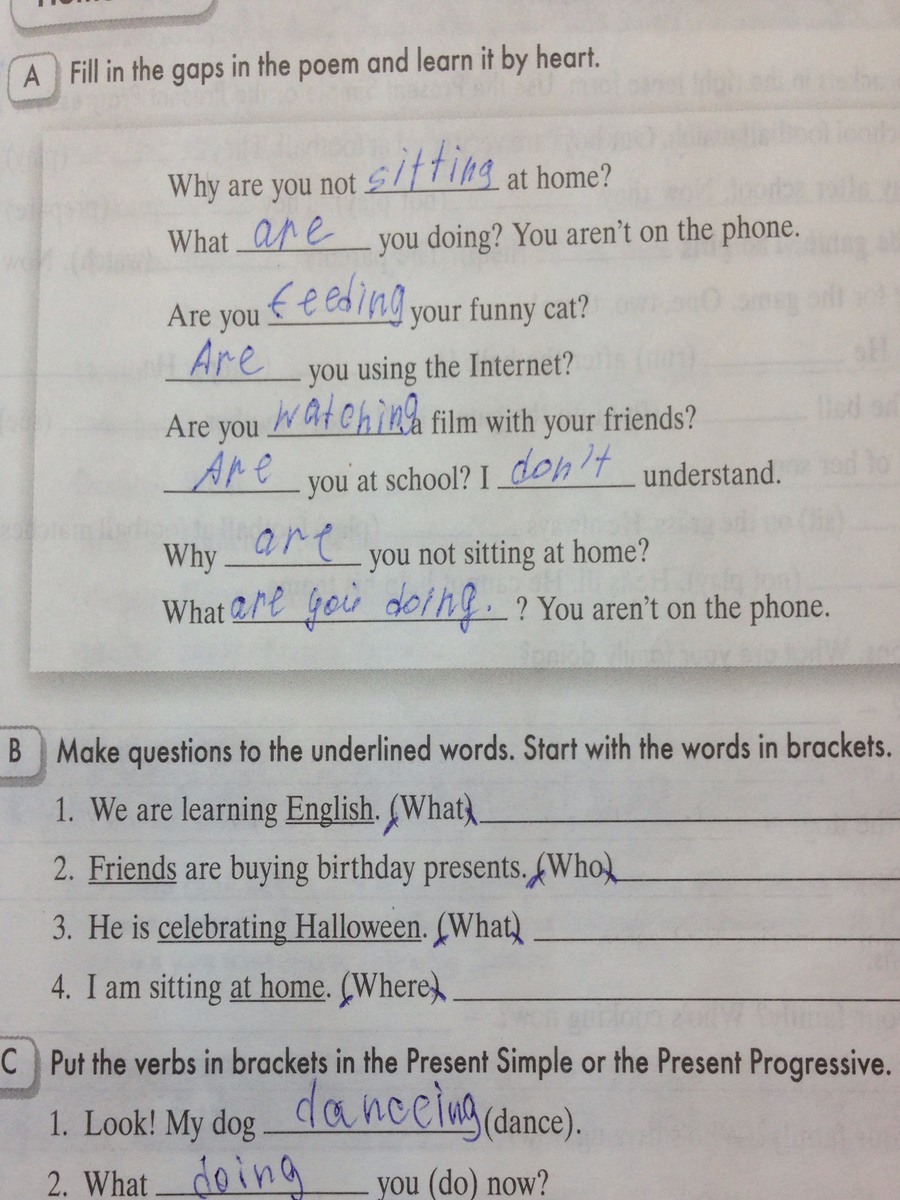 A Fill in the gaps in the poem and learn it by heart.
Why are you not sitting at home?
What are you doing? You aren't on the phone.
Are you feeding your funny cat?
Are you using the Internet?
Are you watching a film with your friends?
Are you at school? I don't understand.
Why are you not sitting at home?
What are you doing. ? You aren't on the phone.
B Make questions to the underlined words. Start with the words in brackets.
1. We are learning English. (What)
2. Friends are buying birthday presents. (Who)
3. He is celebrating Halloween. (What)
4. I am sitting at home. (Where)
C Put the verbs in brackets in the Present Simple or the Present Progressive.
1. Look! My dog danceing (dance).
2. What doing you (do) now?